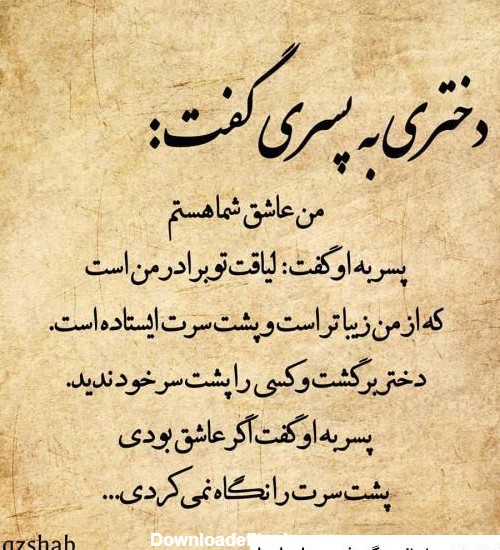 دختری به پسری گفت:
من عاشق شما هستم
پسر به او گفت: لیاقت تو برادر من است
که از من زیباتر است و پشت سرت ایستاده است.
دختر برگشت و کسی را پشت سر خود ندید.
پسر به او گفت اگر عاشق بودی
پشت سرت را نگاه نمی کردی...
gzshab
Downloade